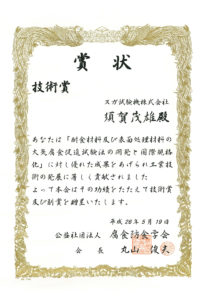 賞状
技術賞
スガ試験機株式会社
須賀茂雄殿
あなたは「耐食材料及び表面処理材料の
大気腐食促進試験法の開発と国際規格
化」に対し優れた成果をあげられ工業技
術の発展に著しく貢献されました
よって本会はその功績をたたえて技術賞
及び副賞を贈呈いたします
平成26年5月19日
公益社団法人 腐食防食学会
会長 丸山俊夫